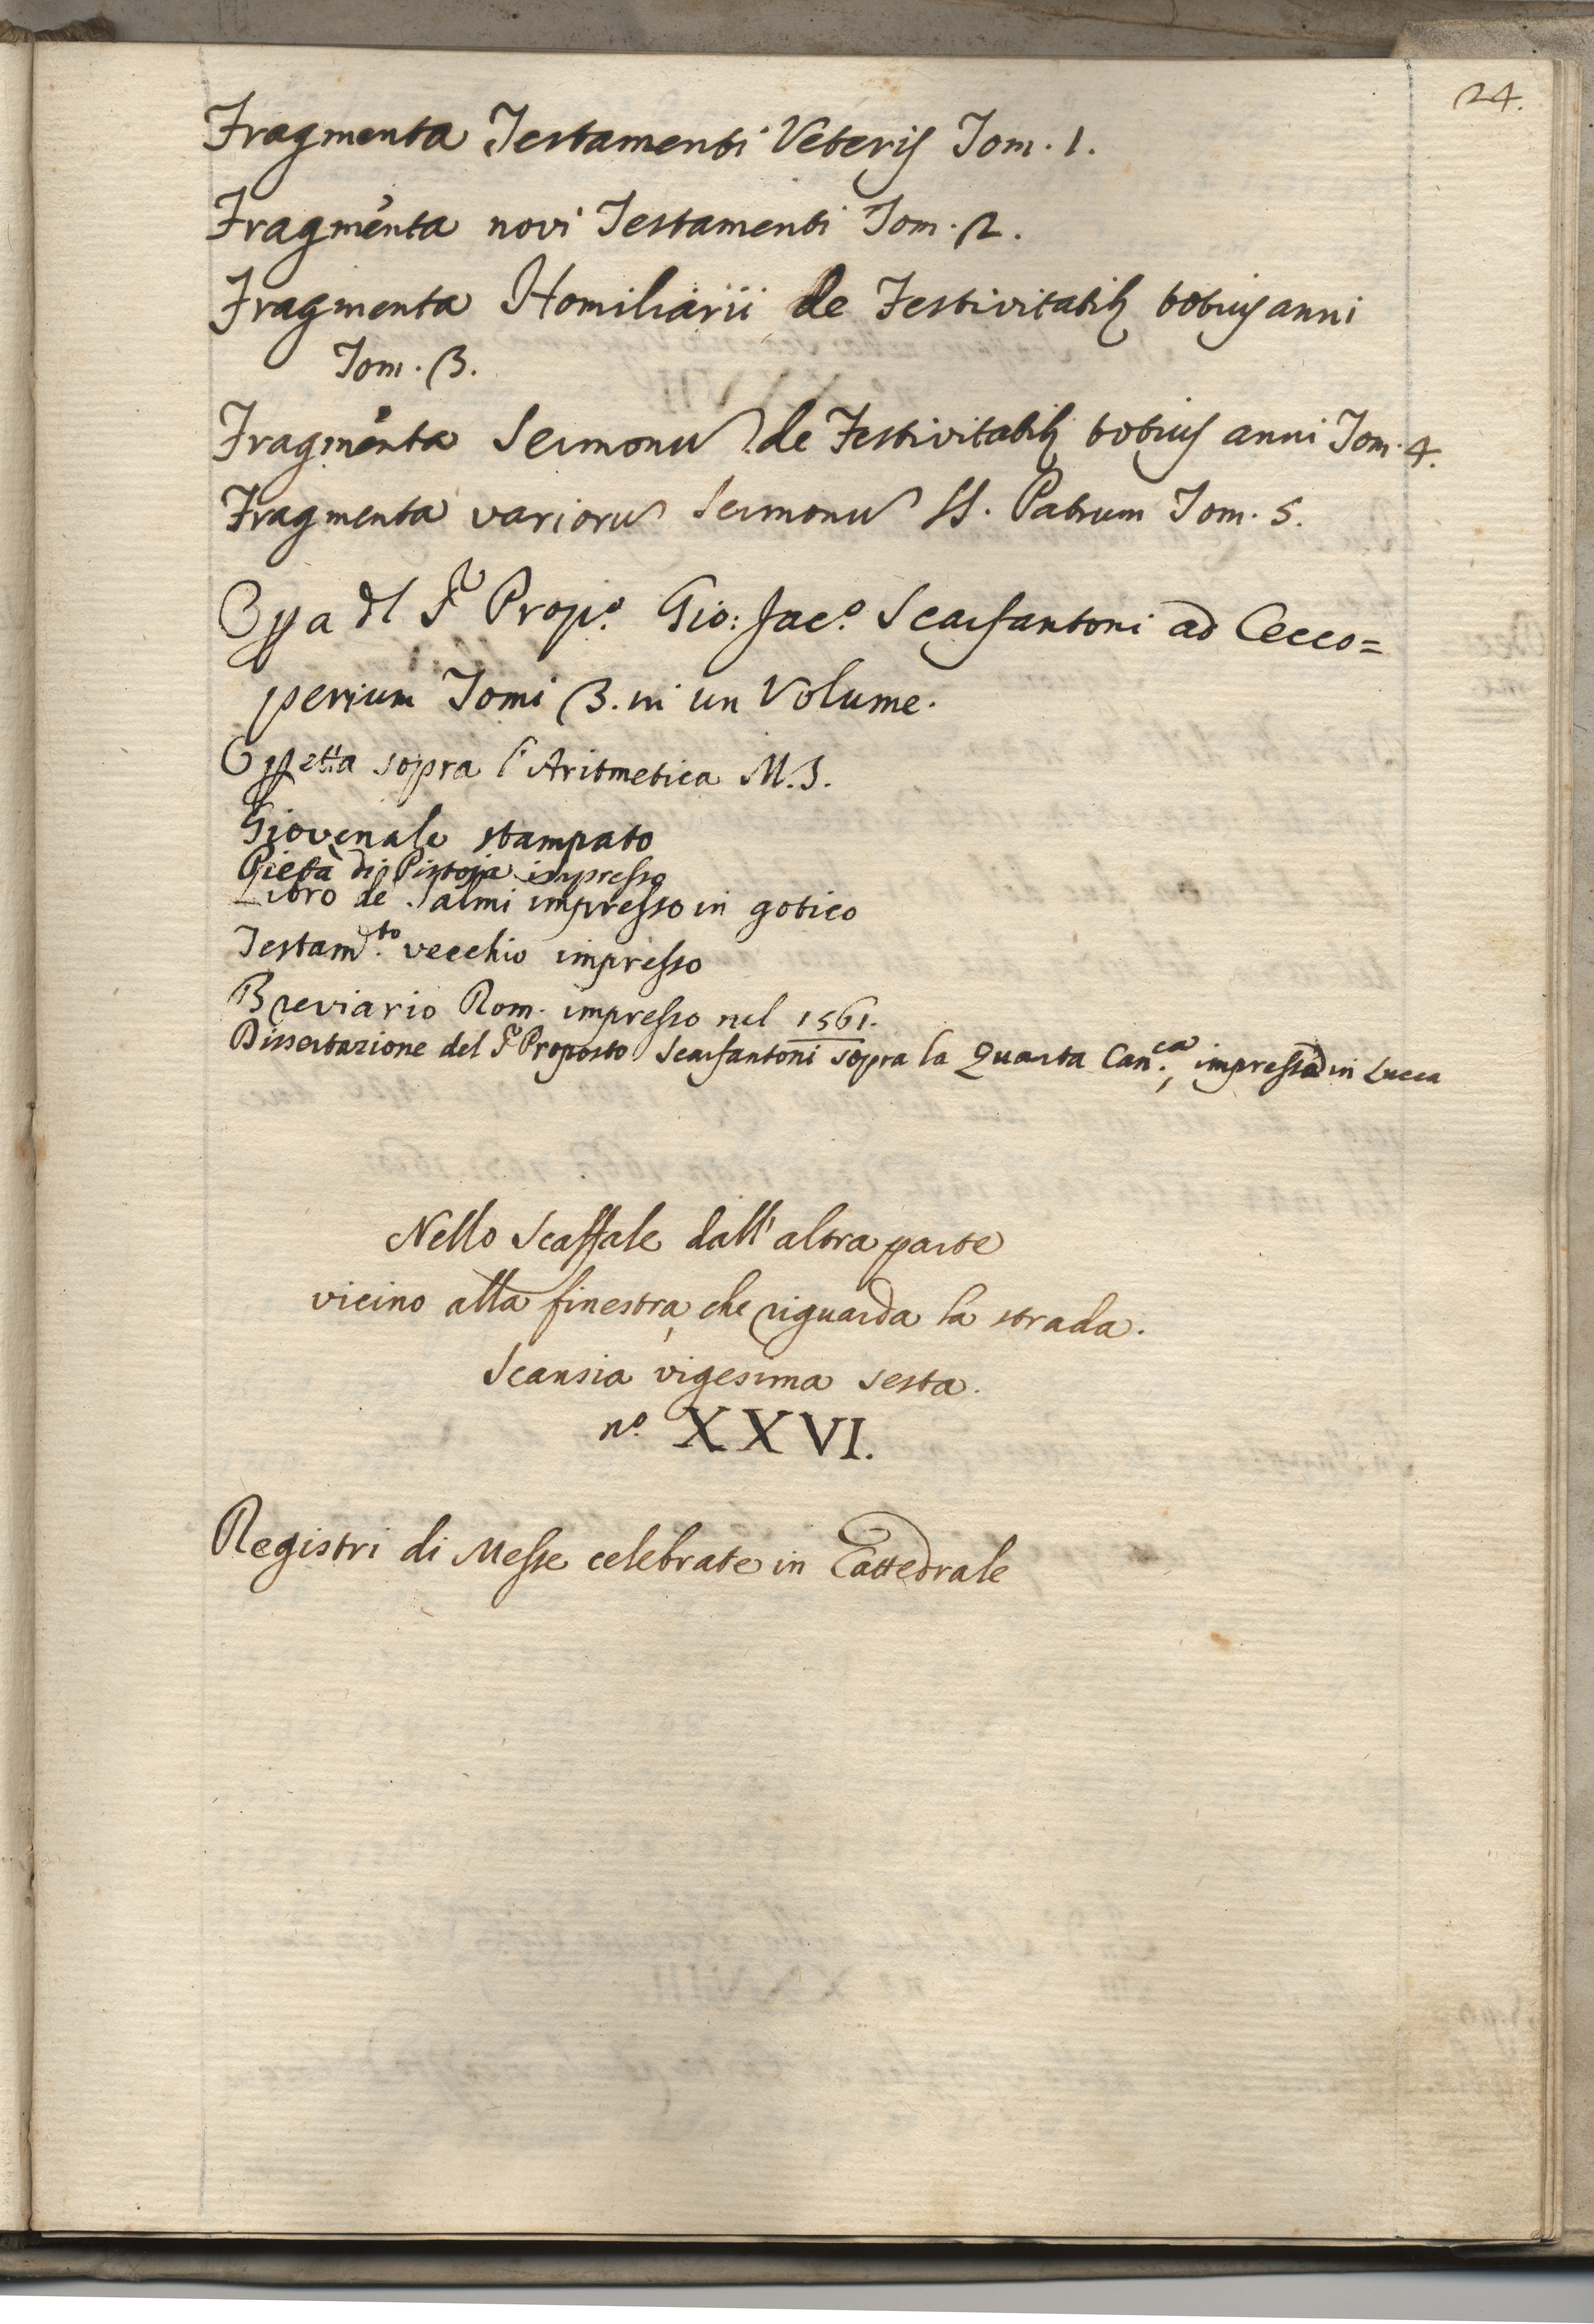 24.
Fragmenta Testamenti Veteris Tom. 1.
Fragmenta novi Testamenti Tom. 2.
Fragmenta Homiliarii de Festivitatib9 totius anni
Tom. 3.
Fragmenta Sermonu de Festivitatib9 totius anni Tom. 4.
Fragmenta varioru Sermonu SS. Patrum Tom. 5.
Oppa dl Prop.o Gio: Jac.o Scarfantoni ad Cecco=
perium Tomi 3. in un Volume.
sopra l'Aritmetica M.S.
Giovenale stampato
Pietà di Pistoja impresso
Libro de Salmi impresso in gotico
Testam.to vecchio impresso
Breviario Rom. impresso nel 1561.
Dissertazione del Proposto Scarfantoni sopra la Quarta Can.ca, impressa in Lucca
Nello Scaffale dall'altra parte
vicino alla finestra, che riguarda la strada.
Scansia vigesima sesta.
n.o XXVI.
Registri di Messe celebrate in Cattedrale